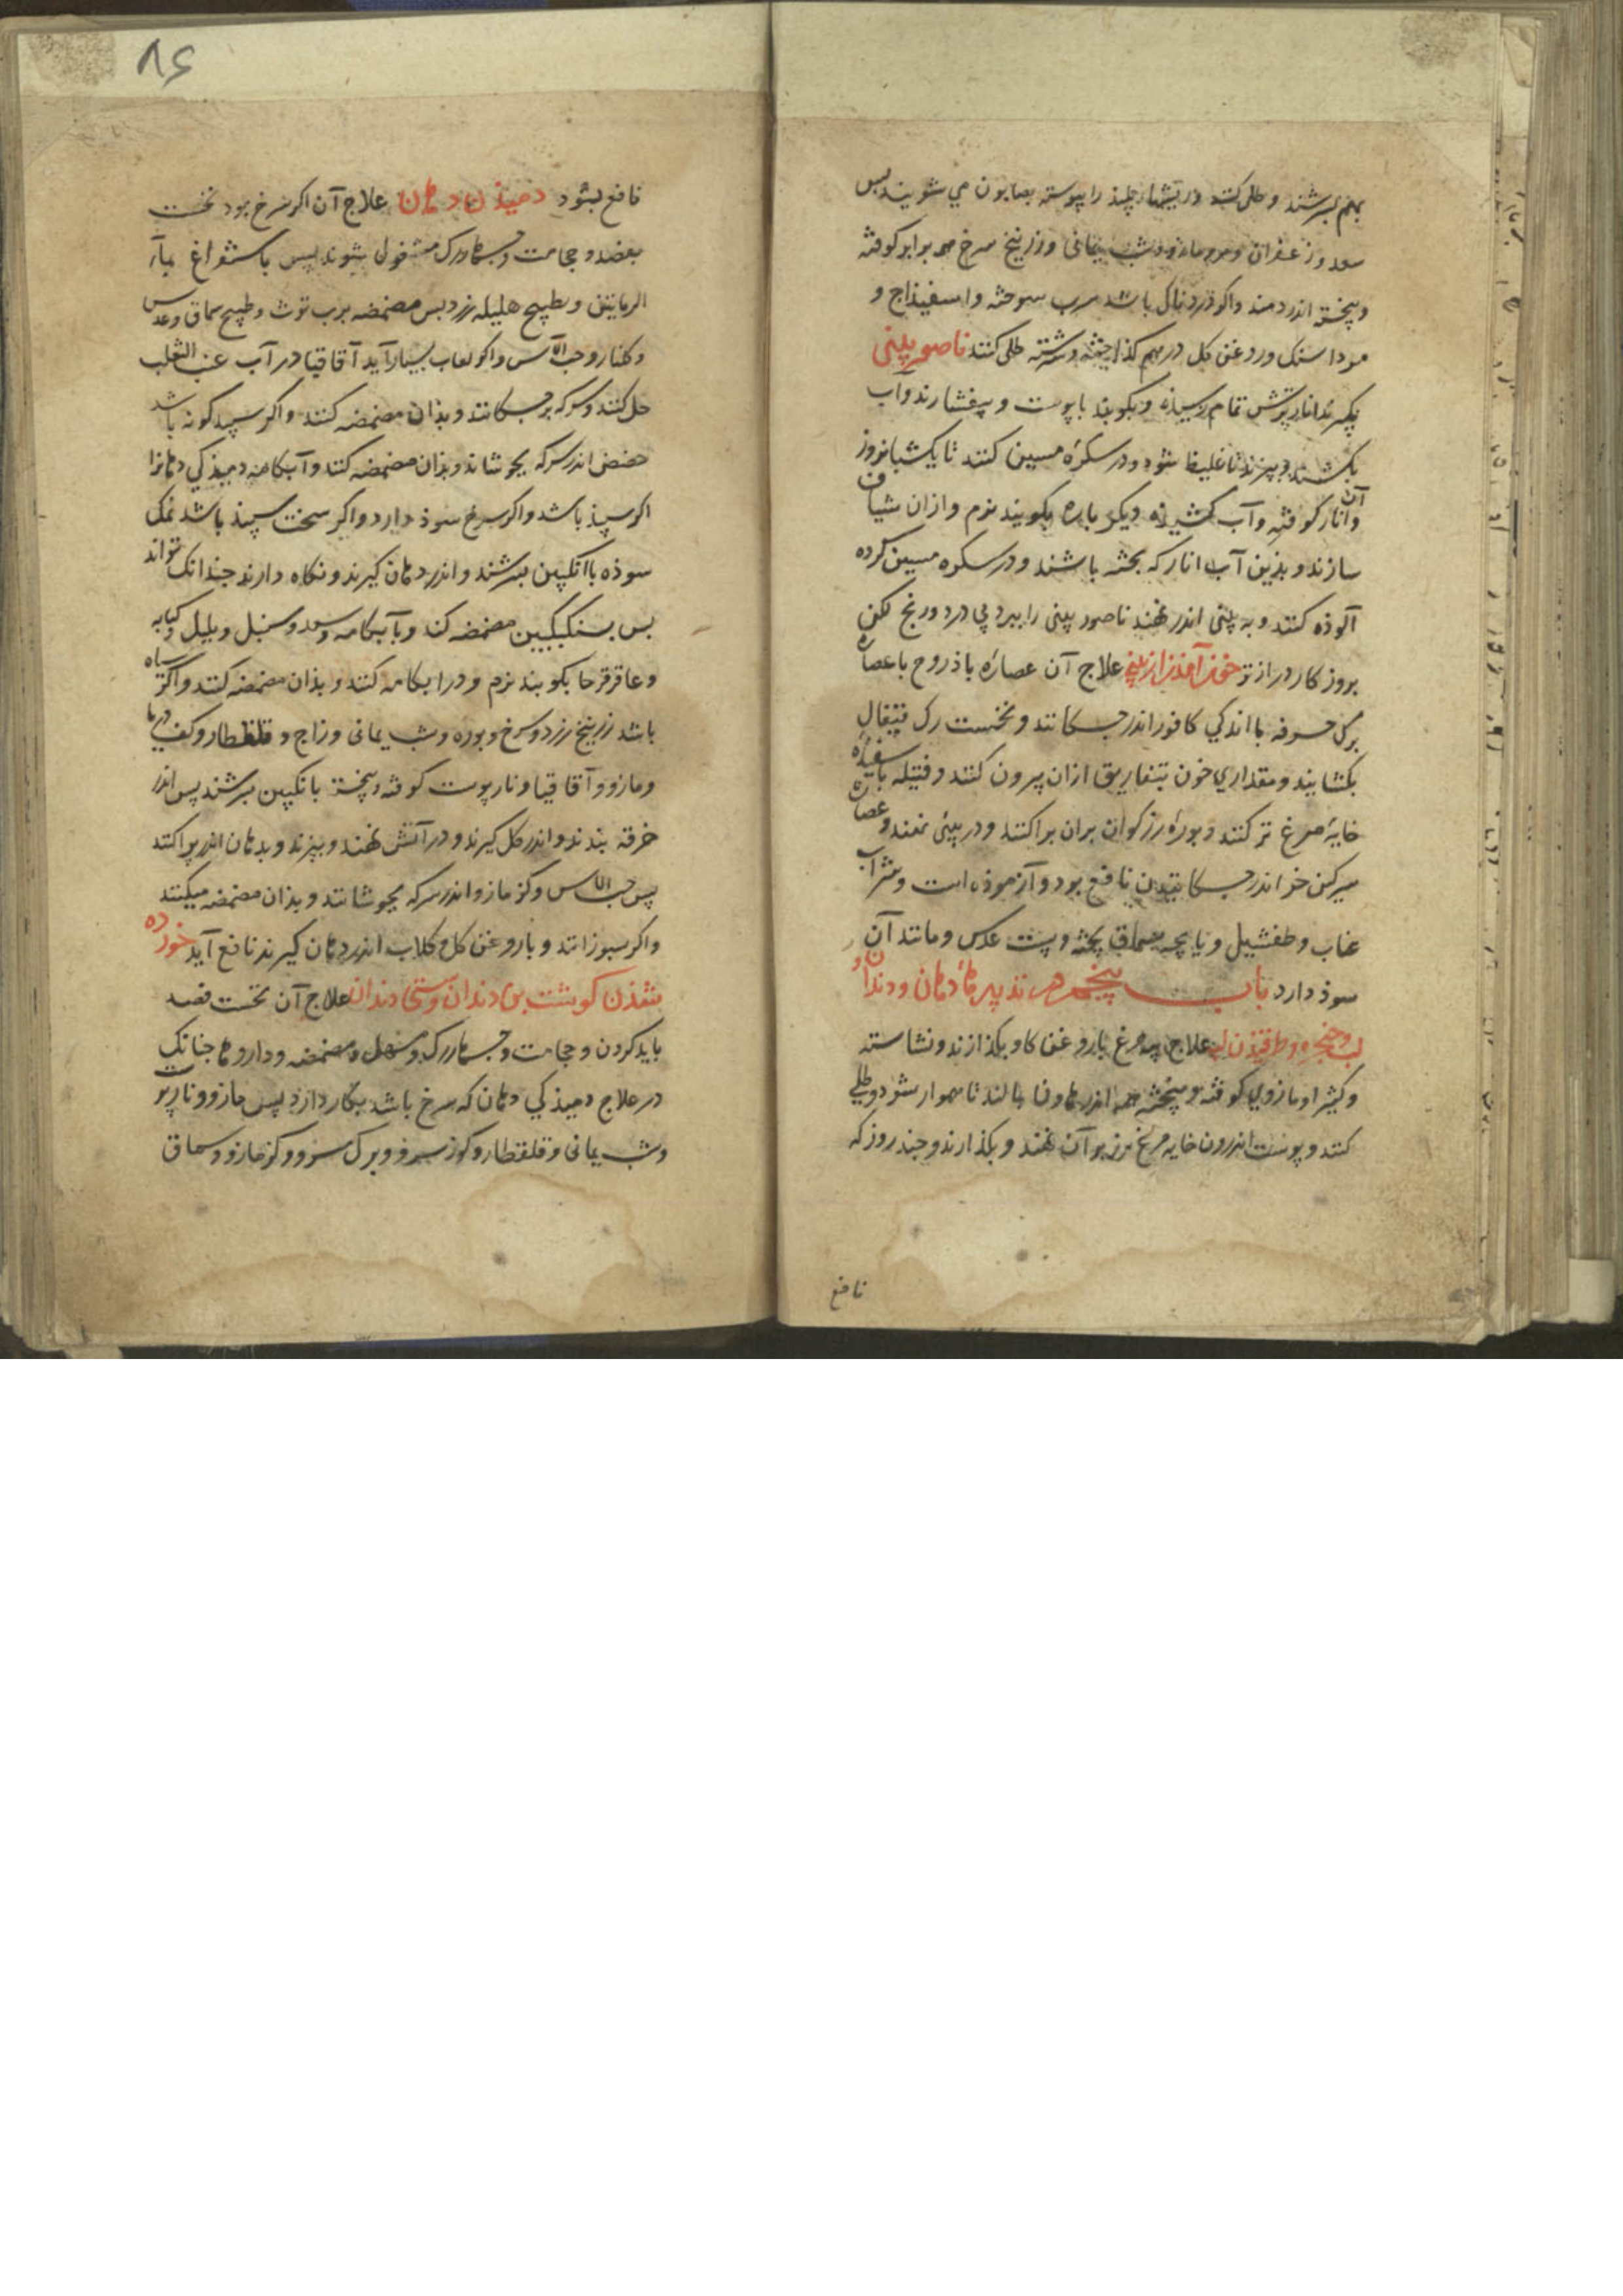 بهم بسرشند و طلی کنند و ریشهار چلیذ را پیوسته بصابون می شویند بس
سعد و زعفران و مر و مازو و شب یمانی و زرنیخ سرخ همه برابر کوفته
و بیخته اندر دمند و اکر دردناک باشد سرب سوخته و اسفیذاج و
مرداسنک و روغن کل در هم کذاخته و سرشته طلی کنند ناصور بینی
بکیرند انار ترش تمام رسیده و بکوبند با پوست و بیفشارند و آب
بکشند و بپزند تا غلیظ شود و در سکرهٔ مسین کنند تا یک شبانروز
و آن انار کوفته و آب کشیده دیکر باره بکوبند نرم و ازان شیاف
سازند و بذین آب انار که پخته باشند و در سکره مسین کرده
آلوذه کنند و به بینی اندر نهند ناصور بینی را ببرد بی درد و رنج لکن
بروزکار درازتر خون آمذن از بینی علاج آن عصارهٔ باذروج با عصاره
برک خرفه با اندکی کافور اندر چکانند و نخست رک قیفال
بکشایند و مقداری خون بتفاریق ازان بیرون کنند و فتیله با سفیدهٔ
خایهٔ مرغ تر کنند و بورهٔ زرکران بران براکنند و در بینی نهند و عصارهٔ
سرکین خر اندر چکانیدن نافع بود و آزموذه است و شراب
عناب و طفشیل و پایچه بسماق پخته و پست عدس و مانند آن
سوذ دارد باب پنجم در تدبیرهاء دهان و دندان و
لب و حنجره و طرقیذن لب علاج پیه مرغ با روغن کاو بکذازند و نشاسته
و کثیرا و مازوی کوفته و بیخته همه اندر هاون بمالند تا هموار شود و طلی
کنند و پوست اندرون خایه مرغ بر زبر آن نهند و بکذارند و چند روز که
نافع
۸۶
نافع بشود دمیذن دهان علاج آن اکر سرخ بود نخست
بفصد و حجامت و جهاررک مشغول شوند پس باستفراغ بماء
الرمانین و بطبیخ هلیله زرد بس مضمضه برب توث و طبیخ سماق و عدس
و کلنار و حب الآس و اکر لعاب بسیار آید آقاقیا در آب عنب الثعلب
حل کنند و سرکه برچکانند و بذان مضمضه کنند و اکر سپید کونه باشد
حضض اندر سرکه بجوشانند و بذان مضمضه کنند و آبکامه دمیذکی دهانرا
اکر سپیذ باشد و اکر سرخ سوذ دارد و اکر سخت سپیذ باشد نمک
سوذه با انکبین بسرشند و اندر دهان کیرند و نکاه دارند چندانک تواند
بس بسکنکبین مضمضه کند و بآبکامه و سعد و سنبل و بلیل و کبابه
و عاقرقرحا بکوبند نرم و در آبکامه کنند و بذان مضمضه کنند و اکر سیاه
باشد زرنیخ زرد و سرخ و بوره و شب یمانی و زاج و قلقطار و کف دریا
و مازو و آقاقیا و نارپوست کوفته و بیخته بانکبین بسرشند پس اندر
خرقه بندند و اندر کل کیرند و در آتش نهند و بپزند و بدهان اندر پراکنند
پس حب الآس و کزمازو اندر سرکه بجوشانند و بذان مضمضه میکنند
و اکر بسوزانند و با روغن کل و کلاب اندر دهان کیرند نافع آید خورده
شذن کوشت بن دندان و سستی دندان علاج آن نخست فصد
باید کردن و حجامت و جهاررک و مسهل و مضمضه و داروها چنانک
در علاج دمیذکی دهان که سرخ باشد بکار دارد پس مازو و نارپوست
و شب یمانی و قلقطار و کوز سرو و برک سرو و کزمازو و سماق